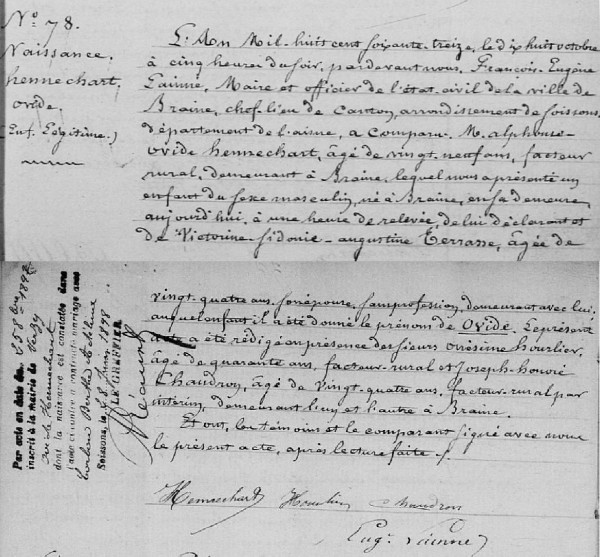 N° 78.
Naissance.
hennechart,
ovide.
(Enf. Légitime.)
L'An Mil-huit cent soixante-treize, le dix huit octobre
à cinq heures du soir, pardevant nous, François-Eugène
Lainne, Maire et officier de l'état civil de la ville de
Braine, chef-lieu de Canton, arrondissement de soissons,
département de l'aisne, a comparu M. alphonse-
ovide hennechart, âgé de vingt-neuf ans, facteur
rural, demeurant à Braine, lequel nous a présenté un
enfant du sexe masculin, né à Braine, en sa demeure,
aujourd'hui, à une heure de relevée, de lui déclarant et
de Victorine-sidonie-augustine Terrasse, âgée de
vingt-quatre ans, son épouse, sans profession, demeurant avec lui,
auquel enfant il a été donné le prénom de ovide. Le présent
acte a été rédigé en présence des sieurs onésime hourlier,
âgé de quarante ans, facteur-rural et Joseph-honoré
Chaudron, âgé de vingt-quatre ans, facteur-rural par
intérim, demeurant l'un et l'autre à Braine.
Et ont, les témoins et le comparant signé avec nous
le présent acte, après lecture faite.
Hennechart Hourlier chaudron
Eug. Lainne
Par acte en date du 8bre 1898
inscrit à la mairie de
ovide Hennechart
dont la naissance est constatée dans
l'acte ci-contre a contracté mariage avec
Berthe
Soissons, le 1898
LE GREFFIER,